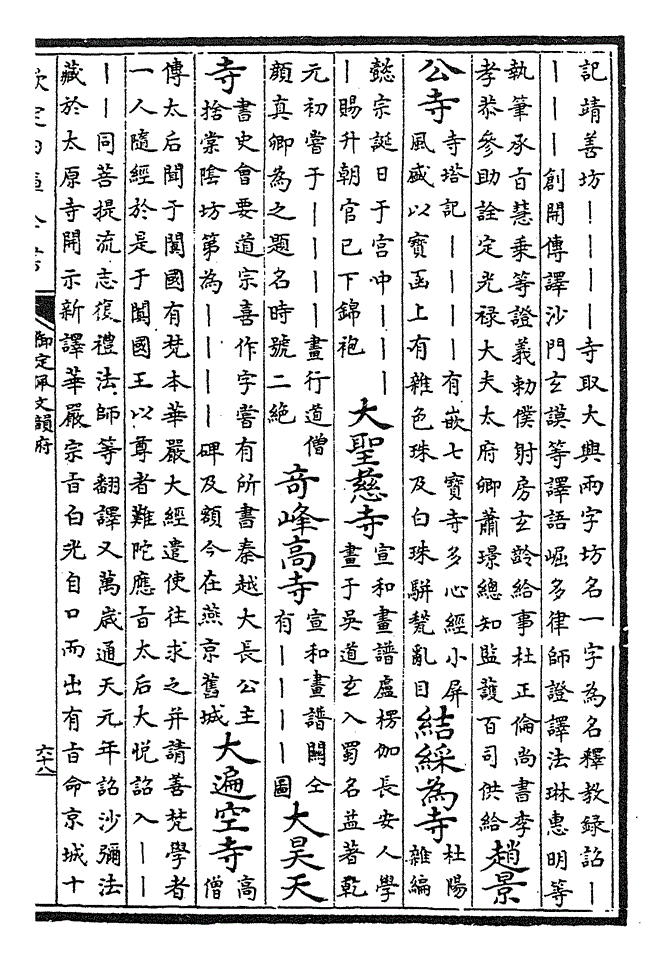 記靖善坊｜｜｜｜寺取大興兩字坊名一字為名釋教録詔｜
｜｜｜創開傳譯沙門玄謨等譯語崛多律師證譯法琳惠明等
執筆承旨慧乗等證義勅僕射房玄齡給事杜正倫尚書李
孝恭參助詮定光禄大夫太府卿蕭璟總知監護百司供給
趙景公寺
寺塔記｜｜｜｜有嵌七寳寺多心經小屏
風盛以寳函上有雜色珠及白珠駢甃亂目
結綵為寺
杜陽
雜編
懿宗誕日于宫中｜｜｜
｜賜升朝官已下錦袍
大聖慈寺
宣和畫譜盧楞伽長安人學
畫于吳道玄入蜀名益著乾
元初嘗于｜｜｜｜畫行道僧
顔真卿為之題名時號二絶
奇峰高寺
宣和畫譜關仝
有｜｜｜｜圖
大昊天寺
書史會要道宗喜作字嘗有所書秦越大長公主
捨棠隂坊第為｜｜｜｜碑及額今在燕京舊城
大遍空寺
高
僧
傳太后聞于闐國有梵本華嚴大經遣使往求之并請善梵學者
一人隨經於是于闐國王以尊者難陀應旨太后大悦詔入｜｜
｜｜同菩提流志復禮法師等翻譯又萬歳通天元年詔沙彌法
藏於太原寺開示新譯華嚴宗旨白光自口而出有旨命京城十
欽定四庫全書
御定佩文韻府
六十八